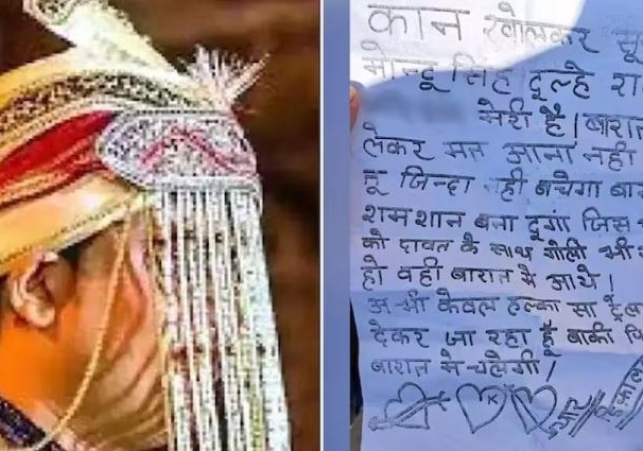 कान खोलकर
मोन्टू सिंह दूल्हे
मेरी है। बारात
लेकर मत आना नही
तू जिन्दा नही बचेगा
शमशान बना दूगां जिस
को दावत के साथ गोली भी
हो वही बारात मे आये।
अभी केवल हल्का सा
देकर जा रहा हूँ बाकी
बारात मे चलेगी।
K